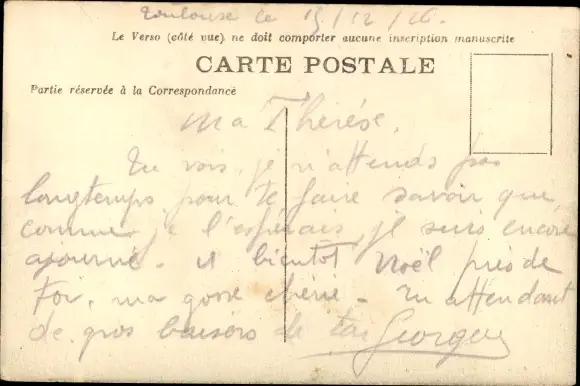 Toulouse le 15/12/26.
Le Verso (côté vue) ne doit comporter aucune inscription manuscrite
CARTE POSTALE
Partie réservée à la Correspondance
Ma Thérèse,
Tu vois, je n'attends pas
longtemps pour te faire savoir que,
comme je l'espérais, je suis encore
ajourné. A bientôt Noël près de
Toi, ma gosse chérie. En attendant
de gros baisers de ton Georges